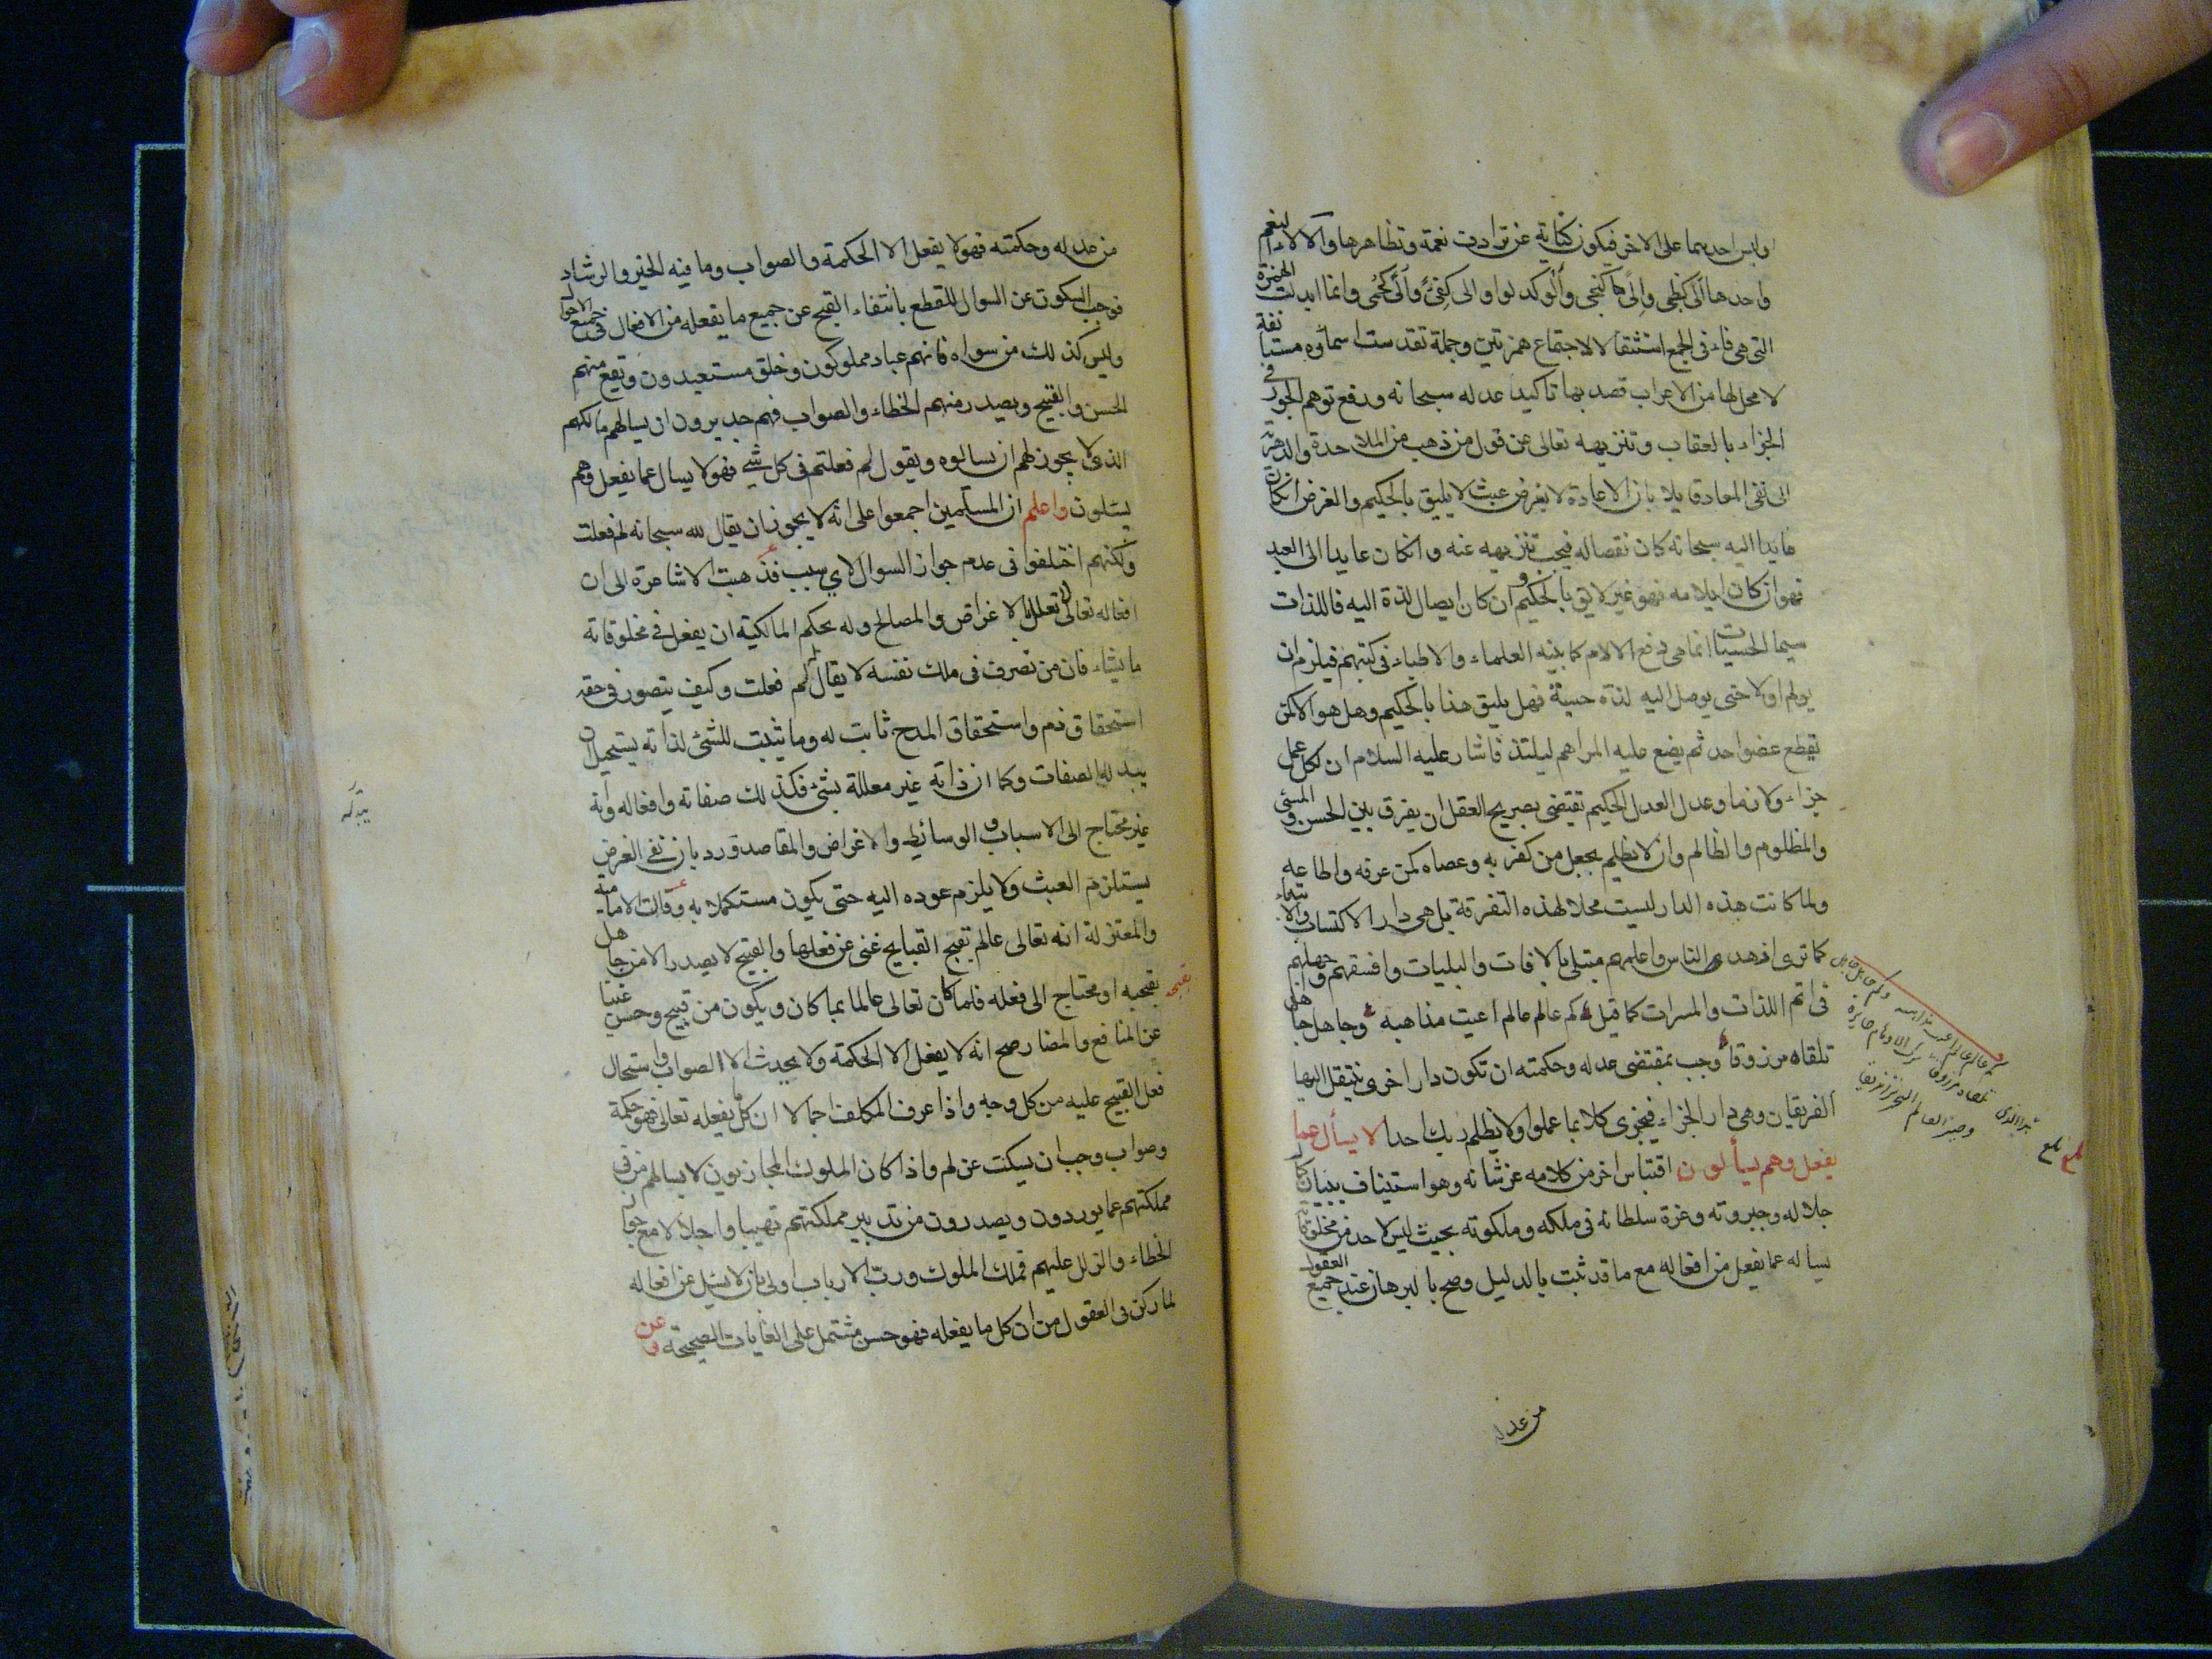 اولبس احديهما على الاخر فيكون كناية عن ترادف نعمه وتظاهرها والالاء النعم
واحدها الى كظبى والى كما كنحى وألو كدلو والى كفئ وألى كحمى وانما ابدلت الهمزة
التى هى فاء فى الجمع استثقالا لاجتماع همزتين وجملة تقدست اسماؤه مستانفة
لا محل لها من الاعراب قصد بها تاكيد عدله سبحانه ودفع توهم الجور فى
الجزاء بالعقاب وتنزيهه تعالى عن قول من ذهب من الملاحدة والدهرية
الى نفى المعاد قايلا بان الاعادة لا لغرض عبث لا يليق بالحكيم والغرض ان كان
عايدا اليه سبحانه كان نقصا له فيجب تنزيهه عنه وان كان عايدا الى العبد
فهو ان كان ايلامه فهو غير لايق بالحكيم وان كان ايصال لذة اليه فاللذات
سيما الحسيات انما هى دفع الالام كما بينه العلماء والاطباء فى كتبهم فيلزم ان
يولم اولا حتى يوصل اليه لذة حسية فهل يليق هذا بالحكيم وهل هو الا كمن
يقطع عضو احد ثم يضع عليه المراهم ليلتذ فاشار عليه السلام ان لكل عمل
جزاء ولا ندما وعدل العدل الحكيم تقتضى بصريح العقل ان يفرق بين المحسن والمسئ
والمظلوم والظالم وان لا يظلم بجعل من كفر به وعصاه كمن عرفه واطاعه
ولما كانت هذه الدار ليست محلا لهذه التفرقة بل هى دار الاكتساب والابتلاء
كما ترى ازهد الناس واعلمهم مبتلى بالافات والبليات وافسقهم واجهلهم
فى اتم اللذات والمسرات كما قيل كم عالم عالم اعيت مذاهبه وجاهل جاهل
تلقاه مرزوقا وجب بمقتضى عدله وحكمته ان تكون دار اخرى ينتقل اليها
الفريقان وهى دار الجزاء فيجزى كلا بما عملوا ولا يظلم ربك احدا لا يسأل عما
يفعل وهم يسألون اقتباس اخر من كلامه عز شانه وهو استيناف ببيان كمال
جلاله وجبروته وعزة سلطانه فى ملكه وملكوته بحيث ليس لاحد من مخلوقاته
يسأله عما يفعل من افعاله مع ما قد ثبت بالدليل وصح بالبرهان عند جميع العقول
من عدله
كم عالم عالم اعيت مذاهبه وكم جاهل جاهل
تلقاه مرزوقا هذا الذى ترك الاوهام حايرة
وصير العالم النحرير زنديقا
بلغ
من عدله وحكمته فهو لا يفعل الا الحكمة والصواب وما فيه الخير والرشاد
فوجب السكوت عن السوال للقطع بانتفاء القبح عن جميع ما يفعله من الافعال فى جميع الاحوال
وليس كذلك من سواه فانهم عباد مملوكون وخلق مستعبدون ويقع منهم
الحسن والقبيح ويصدر منهم الخطاء والصواب فهم جديرون ان يسالهم مالكهم
الذى لا يجوز لهم ان يسالوه ويقول لم فعلتم فى كل شئ فهو لا يسال عما يفعل وهم
يسئلون واعلم ان المسلمين اجمعوا على انه لا يجوز ان يقال لله سبحانه لم فعلت
ولكنهم اختلفوا فى عدم جواز السوال لاى سبب فذهبت الاشاعرة الى ان
افعاله تعالى لا تعلل بالاغراض والمصالح وله بحكم المالكية ان يفعل فى مخلوقاته
ما يشاء فان من تصرف فى ملك نفسه لا يقال له لم فعلت وكيف يتصور فى حقه
استحقاق ذم واستحقاق المدح ثابت له وما يثبت للشئ لذاته يستحيل ان
يبدله الصفات وكما ان ذاته غير معللة بشئ فكذلك صفاته وافعاله وانه
غير محتاج الى الاسباب والوسائط والاغراض والمقاصد ورد بان نفى الغرض
يستلزم العبث ولا يلزم عوده اليه حتى يكون مستكملا به وقالت الامامية
والمعتزلة انه تعالى عالم بقبح القبايح غنى عن فعلها والقبيح لا يصدر الا من جاهل
بقبحه او محتاج الى فعله فلما كان تعالى عالما بما كان ويكون من قبيح وحسن غنيا
عن المنافع والمضار صح انه لا يفعل الا الحكمة ولا يحدث الا الصواب واستحال
فعل القبيح عليه من كل وجه واذا عرف المكلف اجمالا ان كل ما يفعله تعالى فهو حكمة
وصواب وجب ان يسكت عن لم واذا كان الملوك المجازيون لا يسالهم من فى
مملكتهم عما يوردون ويصدرون من تدبير مملكتهم تهيبا واجلالا مع جواز
الخطاء والزلل عليهم فملك الملوك ورب الارباب اولى بان لا يسئل عن افعاله
لما ركن فى العقول من ان كل ما يفعله فهو حسن مشتمل على الغايات الصحيحة وعن
بقبحه
يبدله